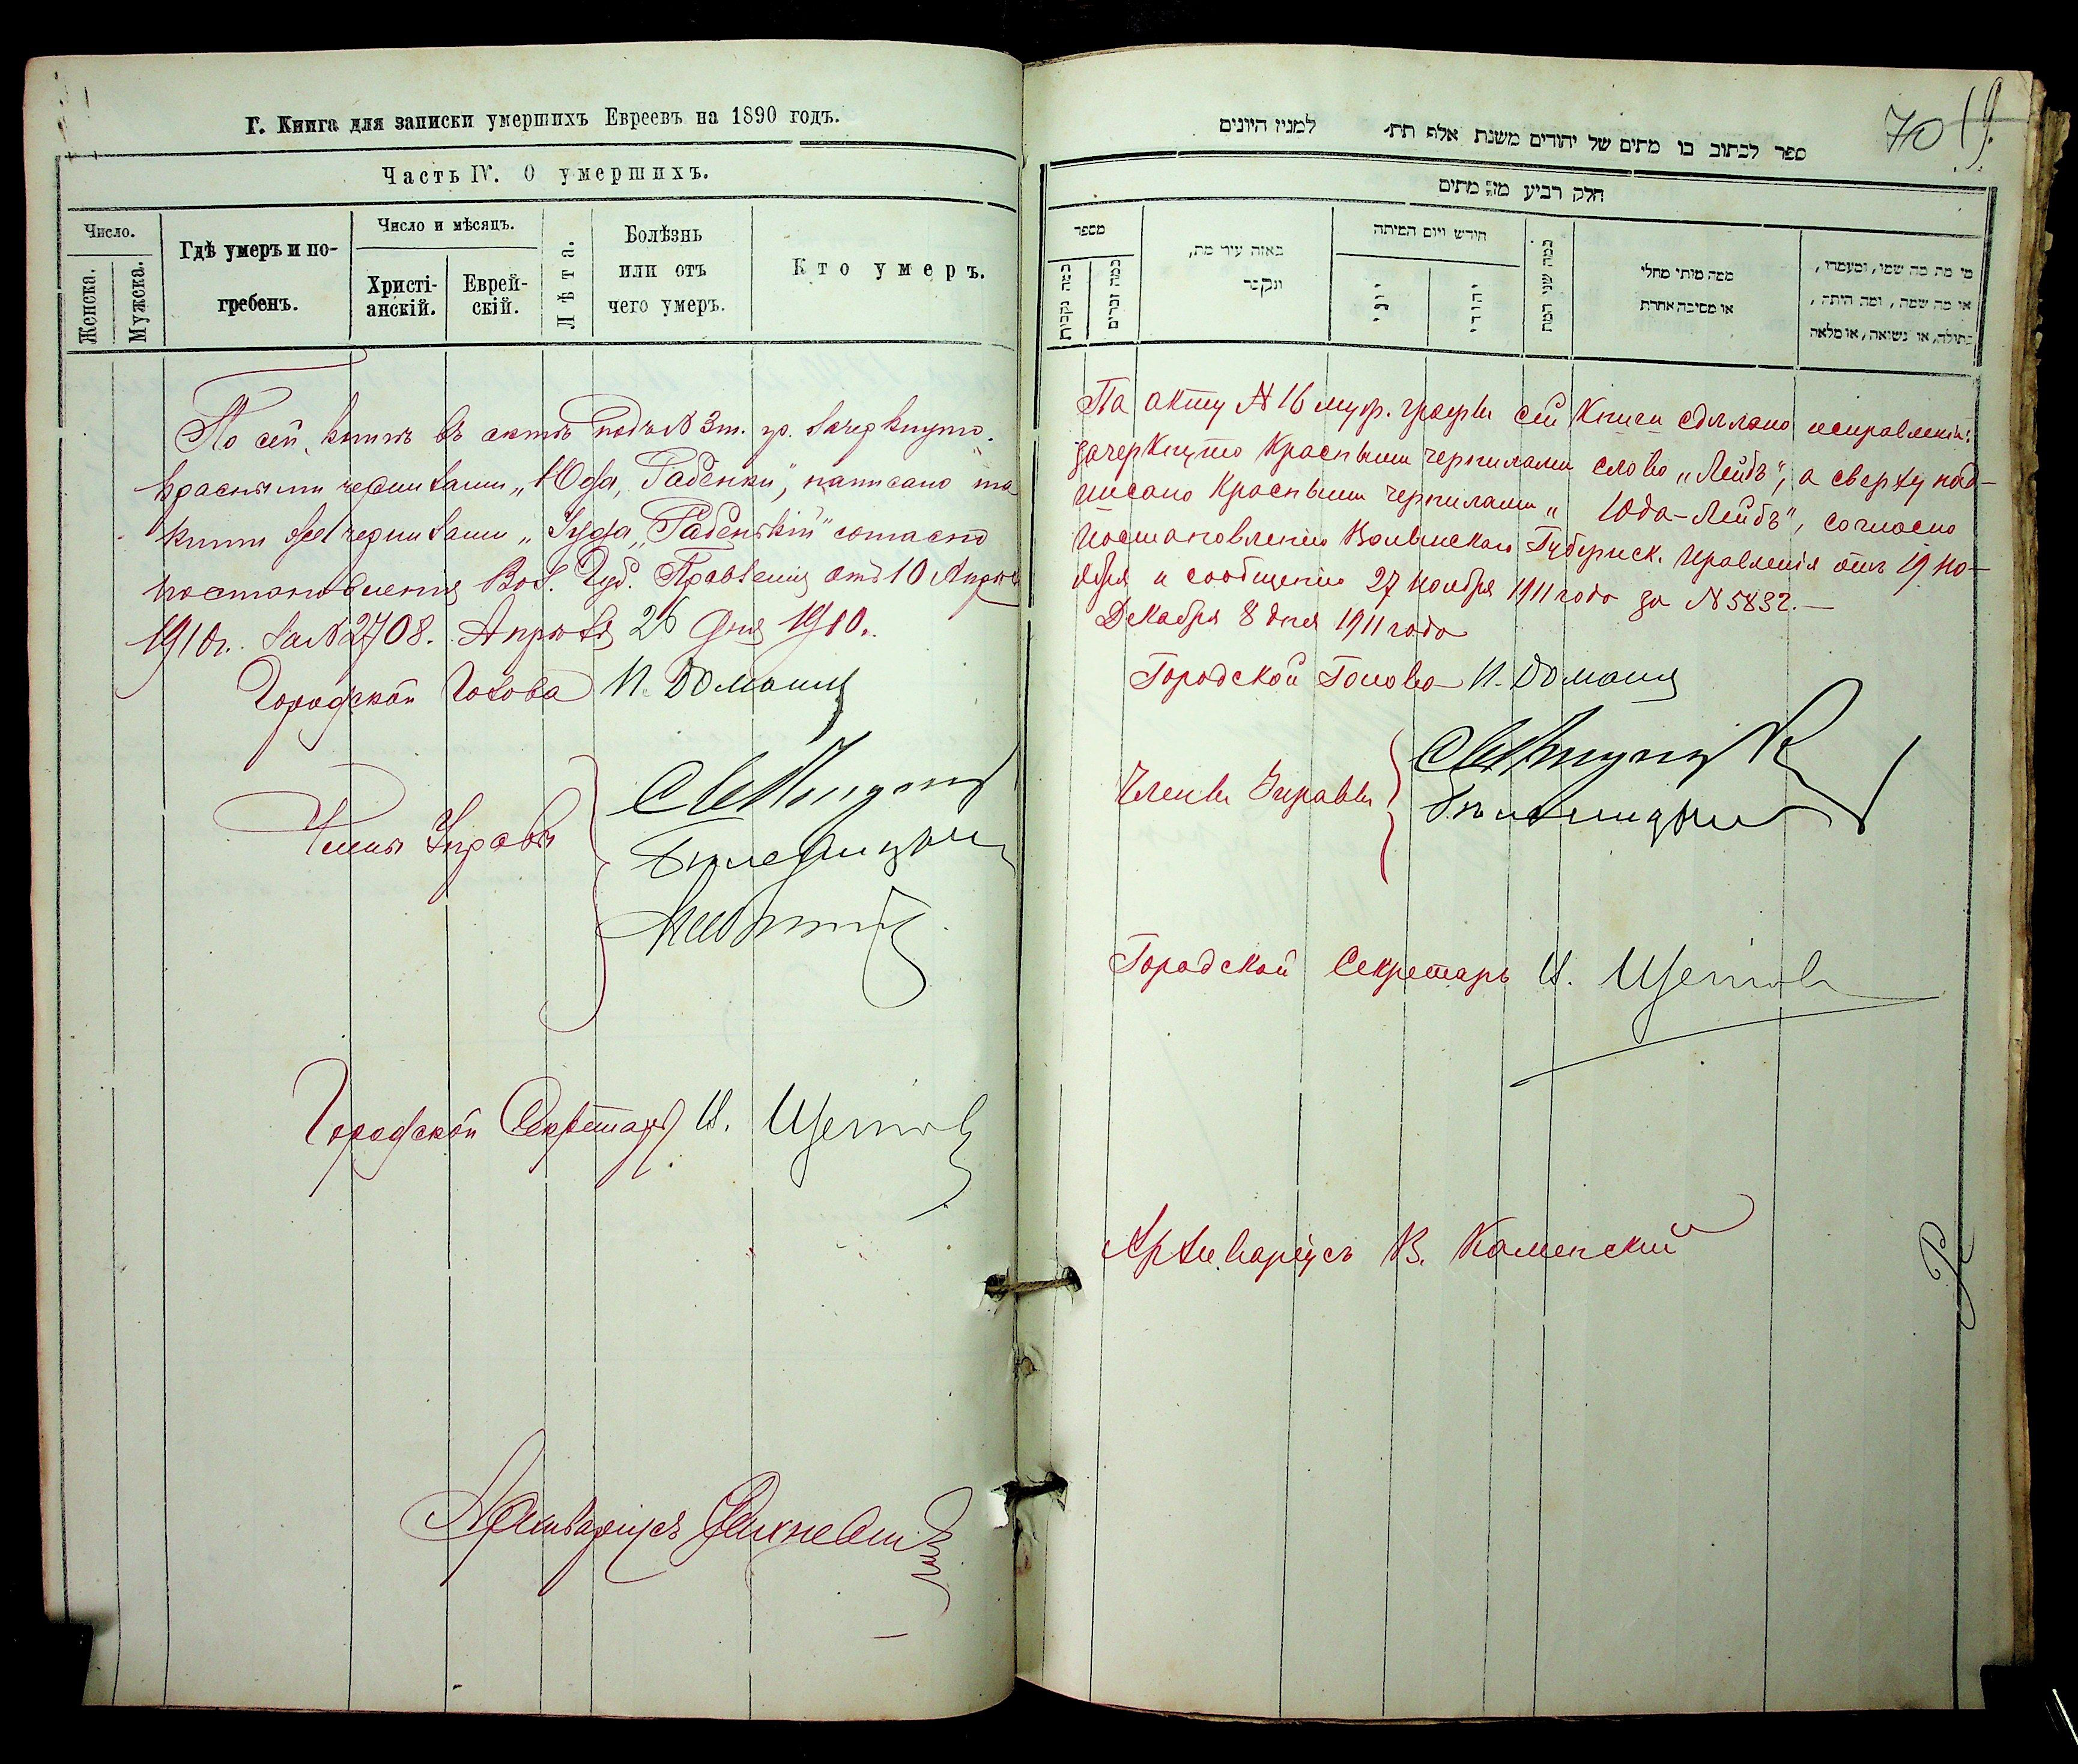 Г. Книга для записки умершихъ Евреевъ на 1890 годъ.
Часть IV. О умершихъ.
Число.
Женска.
Мужска.
Гдѣ умеръ и по-
гребенъ.
Число и мѣсяцъ.
Христі-
анскій.
Еврей-
скій.
Лѣта.
Болѣзнь
или отъ
чего умеръ.
Кто умеръ.
По сей книгѣ въ актѣ подъ № 3 м. гр. зачеркнуто
красными чернилами „Юда, Рабенки", написано та
кими же чернилами „Іуда, Рабенькій" согласно
постановленія Вол. Губ. Правленія отъ 10 Апрѣля
1910 г. за № 2708. Апрѣля 26 дня 1910 г.
Городской Голова И. Домания
Члены Управы
Городской Секретарь И.
Архиваріусъ
70
ספר לכתוב בו מתים של יהודים משנת אלפ תת׳ למנין היונים
חלק רביע מן מתים
מספר
כמה נקבות
כמה זכרים
באזה עיר מת,
ונקבר
חודש ויום המיתה
יוני
יהודי
כמה שני המת
ממה מיתי מחלי
או מסיבה אחרת
מי מת מה שמו, ומעמדו,
או מה שמה, ומה היתה,
בתולה, או נשואה, או מלאה
По акту № 16 муж. графы сей Книги сдѣлано исправленіе:
зачеркнуто Красными чернилами слово „Лейбъ", а сверху над-
писано Красными чернилами „Юда-Лейбъ", согласно
постановленію Волынскаго Губернск. Правленія отъ 19 но-
ября и сообщенію 27 ноября 1911 года за № 5832.—
Декабря 8 дня 1911 года
Городской Голова И. Домания
Члены Управы
Городской Секретарь И.
Архиваріусъ В. Каменский